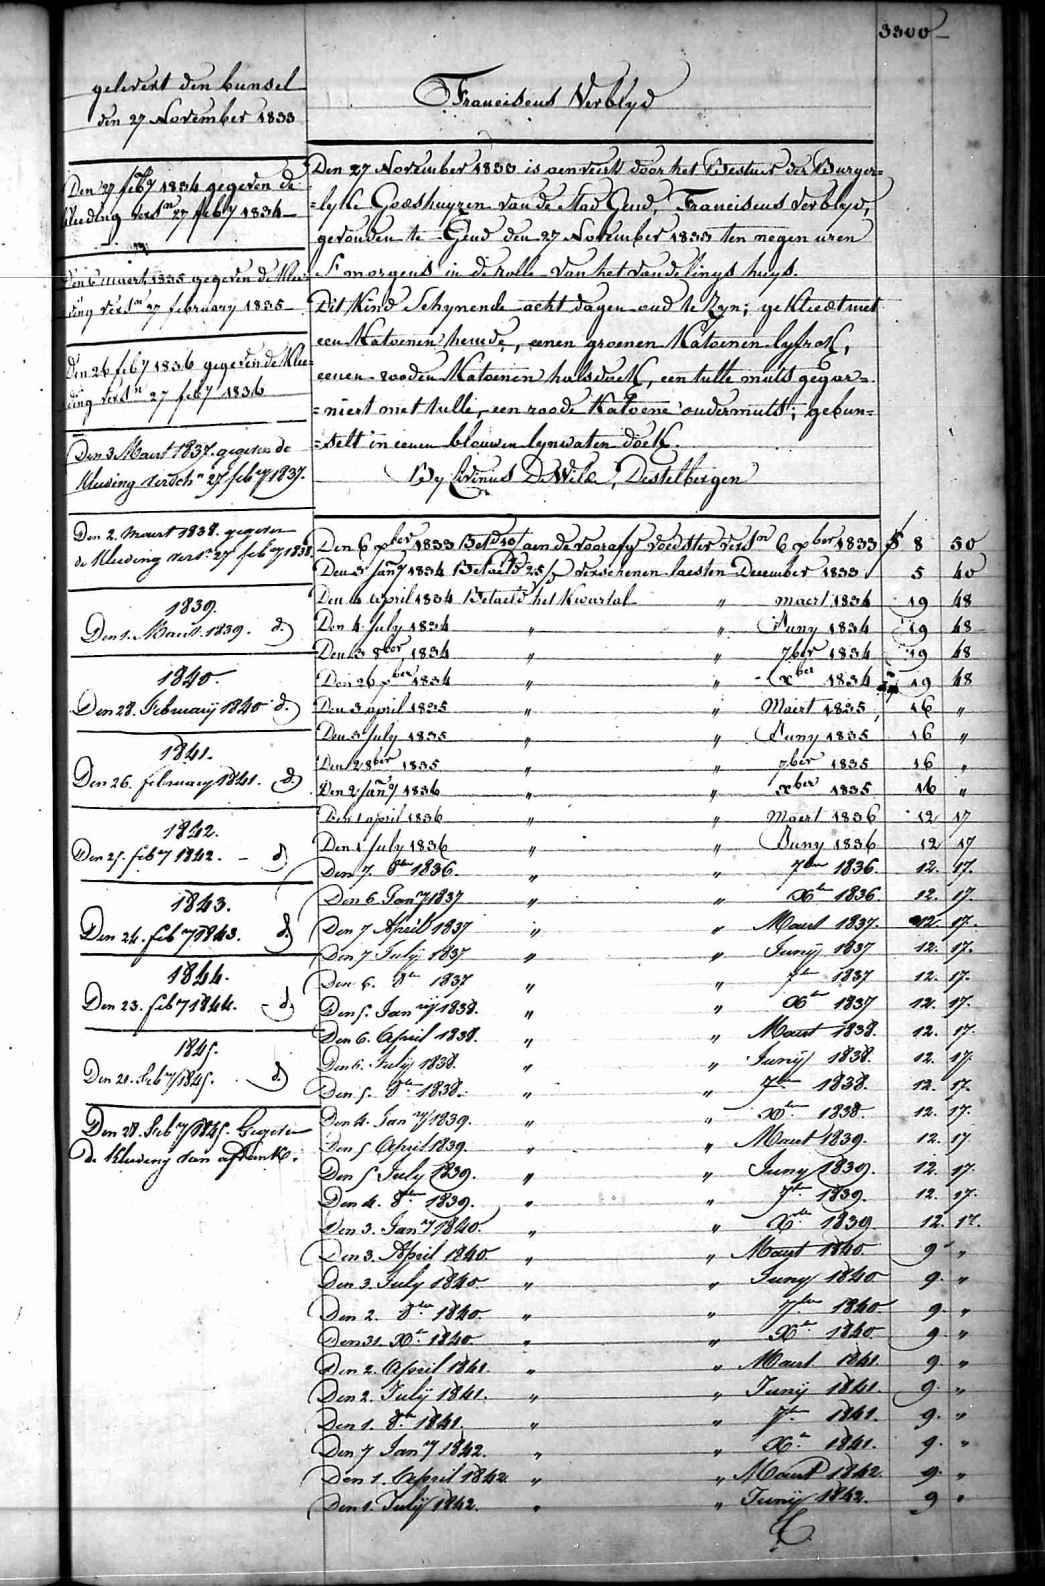 3300
gelevert den bunsel
den 27 November 1833
Den 27 feby 1834 gegeven de
kleeding versn 27 feby 1834
Den 6 maert 1835 gegeven de klee
ding versn 27 february 1835
Den 26 feby 1836 gegeven de klee=
ding versn 27 feby 1836
Den 3 Maert 1837. gegeven de
kleeding versch.n 27 feby 1837.
Den 2. maert 1838. gegeven
de kleeding vers.n 27 feby 1838.
1839.
Den 1. Maert 1839. d.
1840.
Den 28. February 1840 d.
1841.
Den 26. february 1841. d.
1842.
Den 25. feby 1842. - d.
1843.
Den 24. feby 1843. d.
1844.
Den 23. feby 1844. - d.
1845.
Den 21. feby 1845. d.
Den 28. feby 1845. Gegeven
de kleeding van
Franciscus Verblyd
Den 27 November 1833 is aenveert door het Bestuer der Burger=
=lyke Godshuyzen van de Stad Gend, Franciscus Verblyd,
gevonden te Gend den 27 November 1833 ten negen uren
s'morgens in de rolle van het vondelings huys.
Dit kind schynende acht dagen oud te zyn; gekleedt met
een Katoenen hemde, eenen groenen Katoenen lyfrok,
eenen rooden Katoenen halsdoek, een tulle muts gegar=
=niert met tulle, een roode Katoene ondermuts; gebun=
=selt in eenen blauwen lynwaten doek.
By Livinus De Wilde, Destelbergen
Den 6 xber 1833 Bet.d aen de voorafg voedster versn 6 xber 1833 8 50
Den 3 Jany 1834 Betaeld 25/ verschenen laesten December 1833 5 40
Den 4 april 1834 Betaeld het Kwartal " maert 1834 19 48
Den 4 july 1834 " " Juny 1834 19 48
Den 3 8ber 1834 " " 7ber 1834 19 48
Den 26 xber 1834 " " xber 1834 19 48
Den 3 april 1835 " " Maert 1835 16 "
Den 3 July 1835 " " Juny 1835 16 "
Den 2 8ber 1835 " " 7ber 1835 16 "
Den 2 Jany 1836 " " xber 1835 16 "
Den 1 april 1836 " " Maert 1836 12 17
Den 1 July 1836 " " Juny 1836 12 17
Den 7. 8br 1836. " " 7br 1836. 12. 17.
Den 6 Jany 1837 " " Xbr 1836. 12. 17.
Den 7 April 1837 " " Maert 1837. 12. 17.
Den 7 July 1837 " " Junij 1837 12. 17.
Den 6. 8br 1837 " " 7br 1837 12. 17.
Den 5. Janry 1838. " " Xbr 1837 12. 17.
Den 6. April 1838. " " Maert 1838. 12. 17.
Den 6. July 1838. " " Junij 1838. 12. 17.
Den 5. 8br 1838. " " 7br 1838. 12. 17.
Den 4. Jany 1839. " " Xbr 1838. 12. 17.
Den 5 April 1839. " " Maert 1839. 12. 17
Den 5 July 1839. " " Juny 1839. 12. 17.
Den 4. 8br 1839. " " 7br 1839. 12. 17.
Den 3. Jany 1840. " " Xbr 1839 12. 17.
Den 3. April 1840. " " Maert 1840 9 "
Den 3. July 1840. " " Juny 1840 9. "
Den 2. 8br 1840. " " 7br 1840 9. "
Den 31. Xbr 1840. " " Xbr 1840. 9 "
Den 2. April 1841. " " Maert 1841. 9. "
Den 2. July 1841. " " Junij 1841. 9. "
Den 1. 8br 1841. " " 7br 1841. 9. "
Den 7 Jany 1842. " " Xbr 1841. 9. "
Den 1. April 1842. " " Maert 1842. 9. "
Den 1. July 1842. " " Junij 1842. 9 "